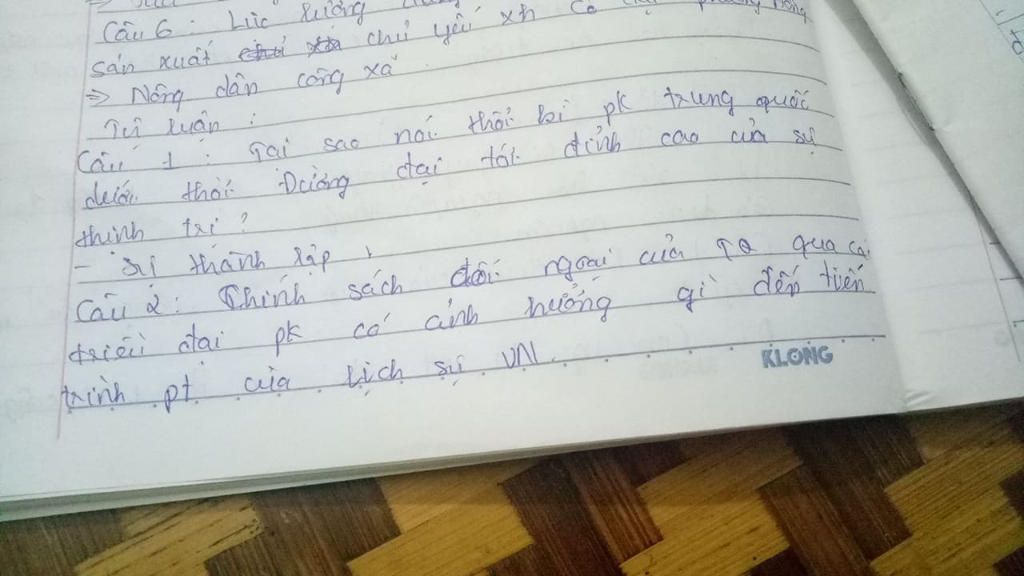 Câu 6: Lực lượng
sản xuất chủ yếu xh cổ đại phương Đông
=> Nông dân công xã
Tự luận:
Câu 1: Tại sao nói thời kì pk trung quốc
dưới thời Đường đạt tới đỉnh cao của sự
thịnh trị?
- Sự thành lập,
Câu 2: Chính sách đối ngoại của TQ qua các
triều đại pk có ảnh hưởng gì đến tiến
trình pt của lịch sử VN.
KLONG